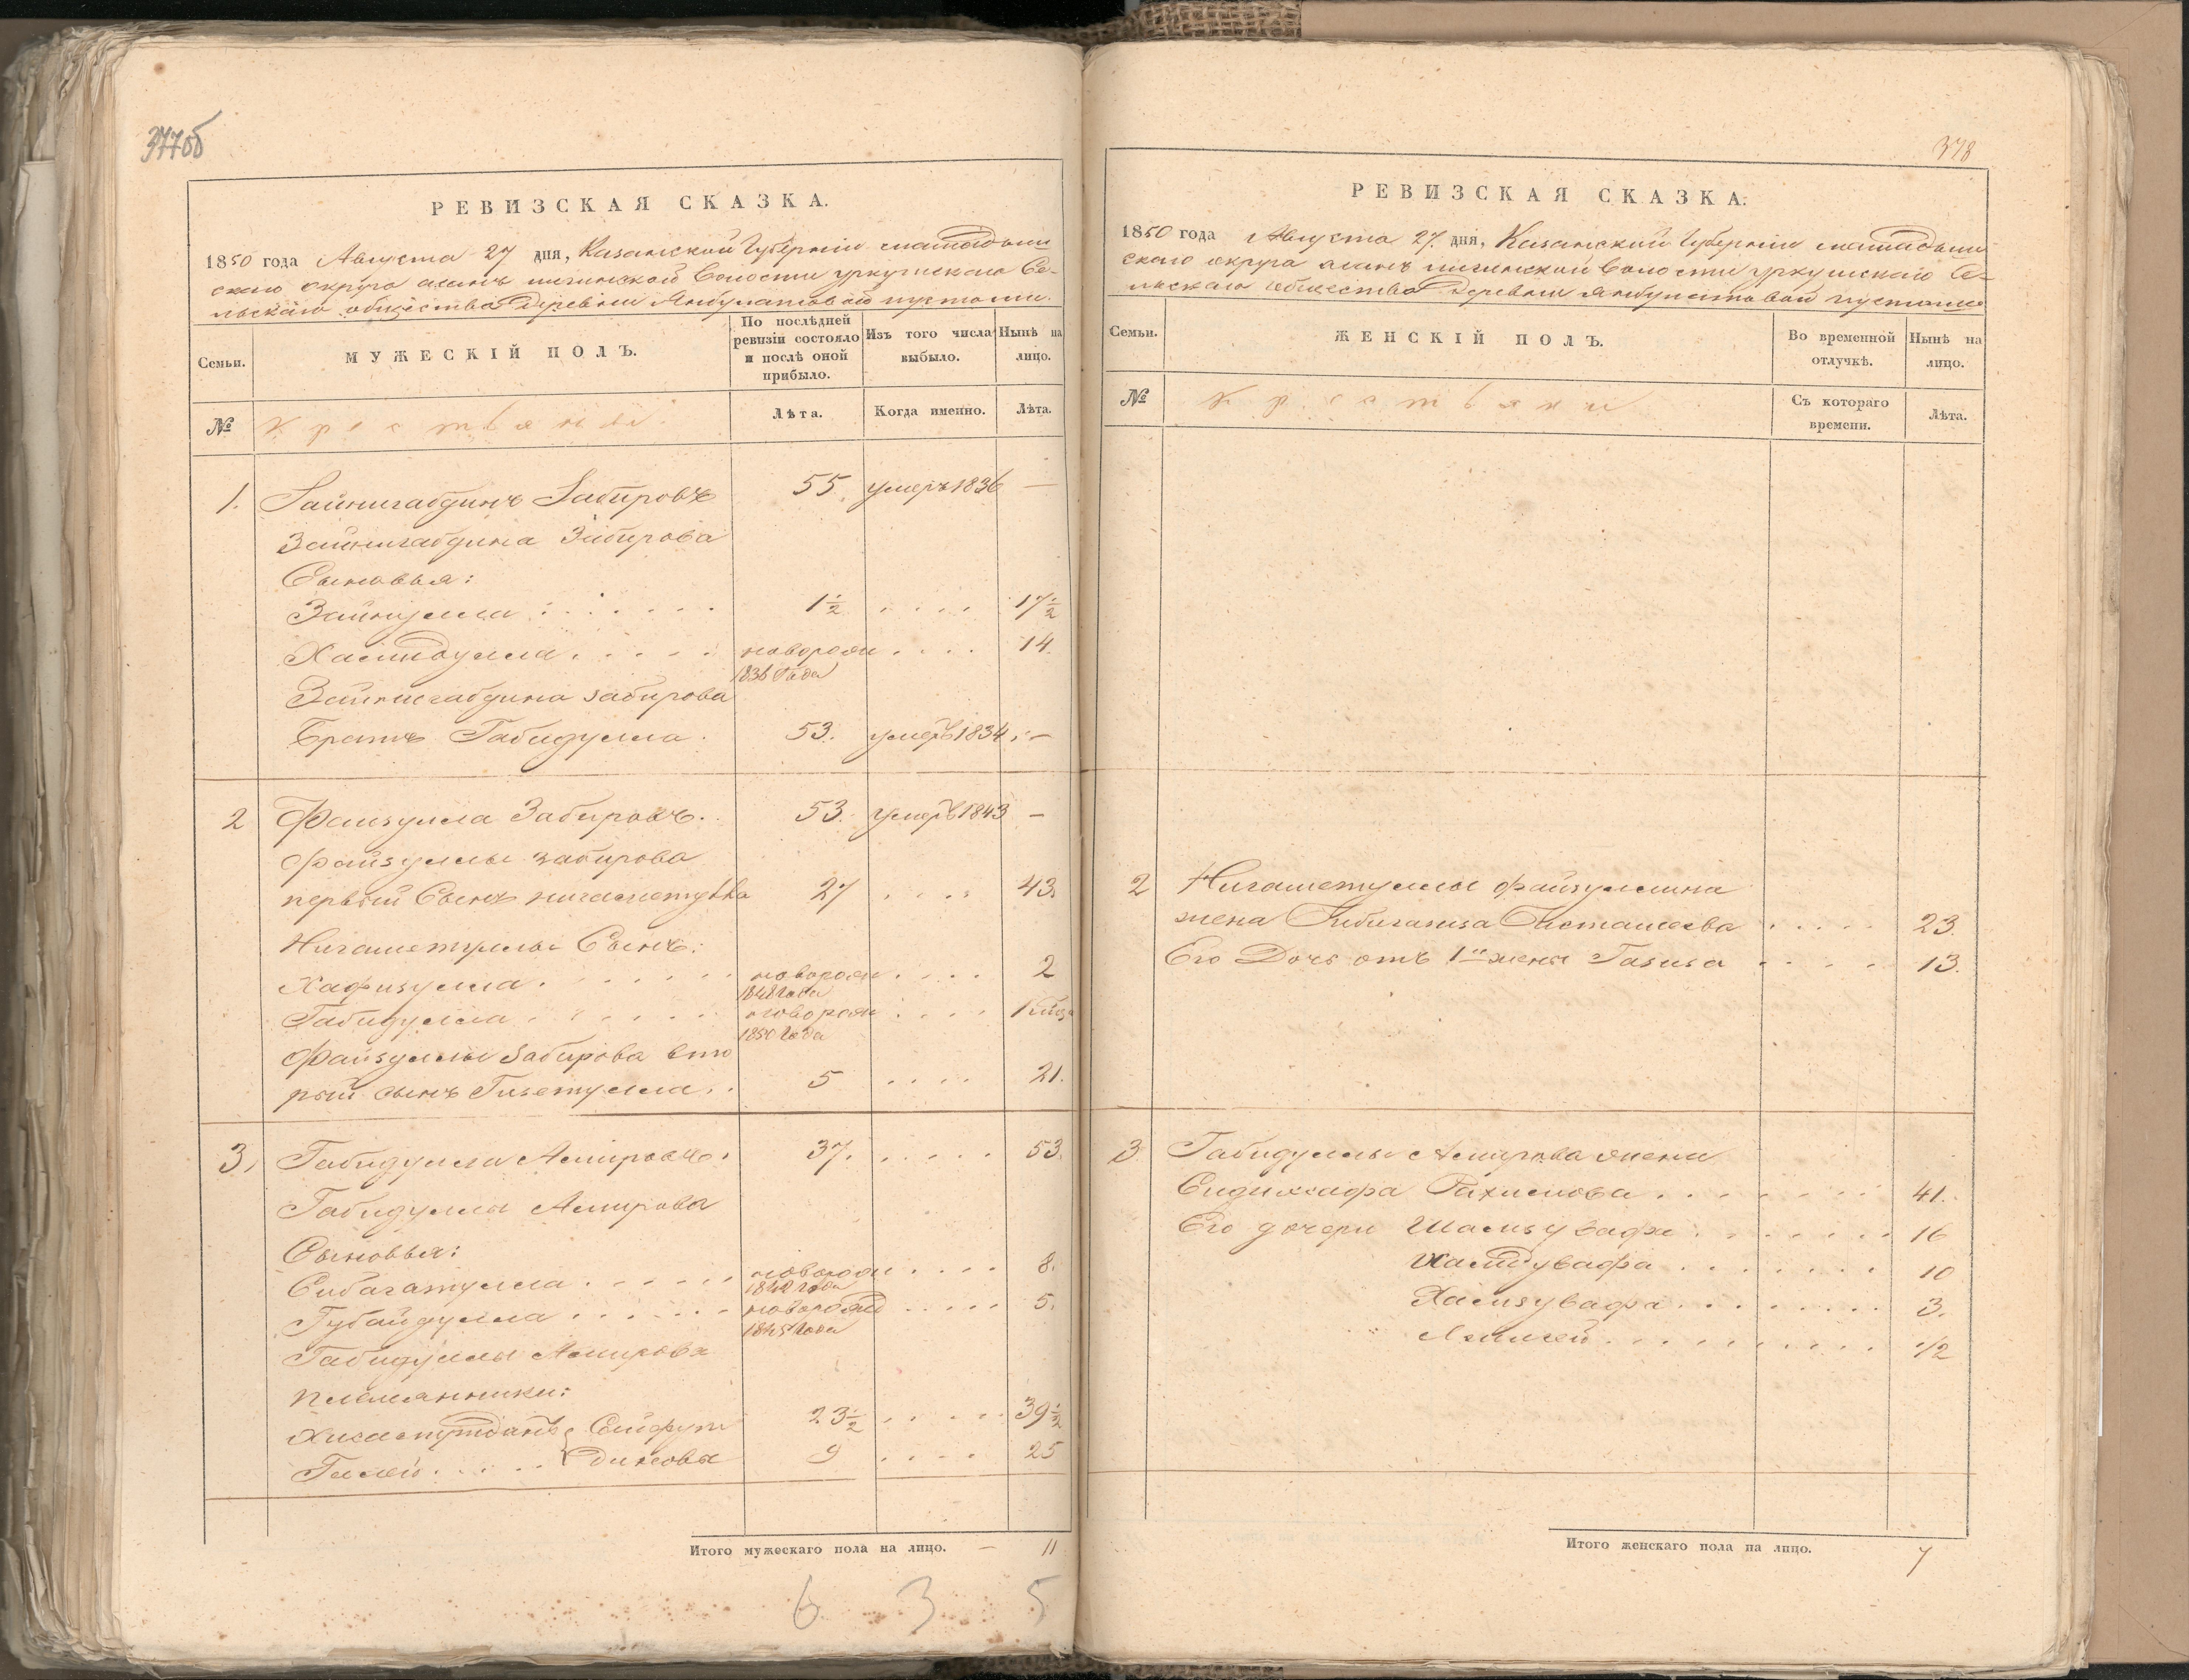 377об
РЕВИЗСКАЯ СКАЗКА.
1850 года Августа 27 дня, Казанской Губернiи мамадыш
скаго округа Волости уркушскаго Се-
льскаго общества Деревни Янбулатовой пустоши.
Семьи.
МУЖЕСКIЙ ПОЛЪ.
По послѣдней ревизiи состояло и послѣ оной прибыло.
Изъ того числа выбыло.
Нынѣ на лицо.
№
крестьяне
Лѣта.
Когда именно.
Лѣта.
1. Зайнигабдинъ Забировъ 55. умеръ 1836 —
Зайнигабдина Забирова
Сыновья:
Зайнулла 1½ 17½
Хамидулла новорожд 14.
1836 Года
Зайнигабдина забирова
Братъ Габидулла 53. умеръ 1834 —
2 Файзулла Забировъ. 53. умеръ 1843 —
Файзуллы забирова
первый Сынъ нигаметулла 27 43.
Нигаметуллы Сынъ:
Хафизулла новорожд 2
1848 Года
Габидулла новорожд
1850 Года
Файзуллы Забирова вто
рый сынъ Гизетулла 5 21.
3, Габидулла Амировъ. 37. 53.
Габидуллы Амирова
Сыновья:
Сибагатулла новорожд 8.
1842 года
Губайдулла новорожд 5.
1845 Года
Габидуллы Амирова
племянники:
Сейфут 23½ 39½
Галей диновы 9 25
Итого мужескаго пола на лицо. — 11
6 3 5
378
РЕВИЗСКАЯ СКАЗКА.
1850 года Августа 27. дня, Казанской Губернiи мамадыш
скаго округа Волости уркушскаго Се-
льскаго общества Деревни Янбулатовой пустоши
Семьи.
ЖЕНСКIЙ ПОЛЪ.
Во временной отлучкѣ.
Нынѣ на лицо.
№
крестьянки
Съ котораго времени.
Лѣта.
2 Нигаметуллы файзуллина
жена 23.
Его Дочь отъ 1й жены Газиза 13.
3 Габидуллы Амирова жена
Рахимова 41.
Его дочери Шамзувафа 16
Хамдувафа 10
Хамзувафа 3.
1/2
Итого женскаго пола на лицо. 7